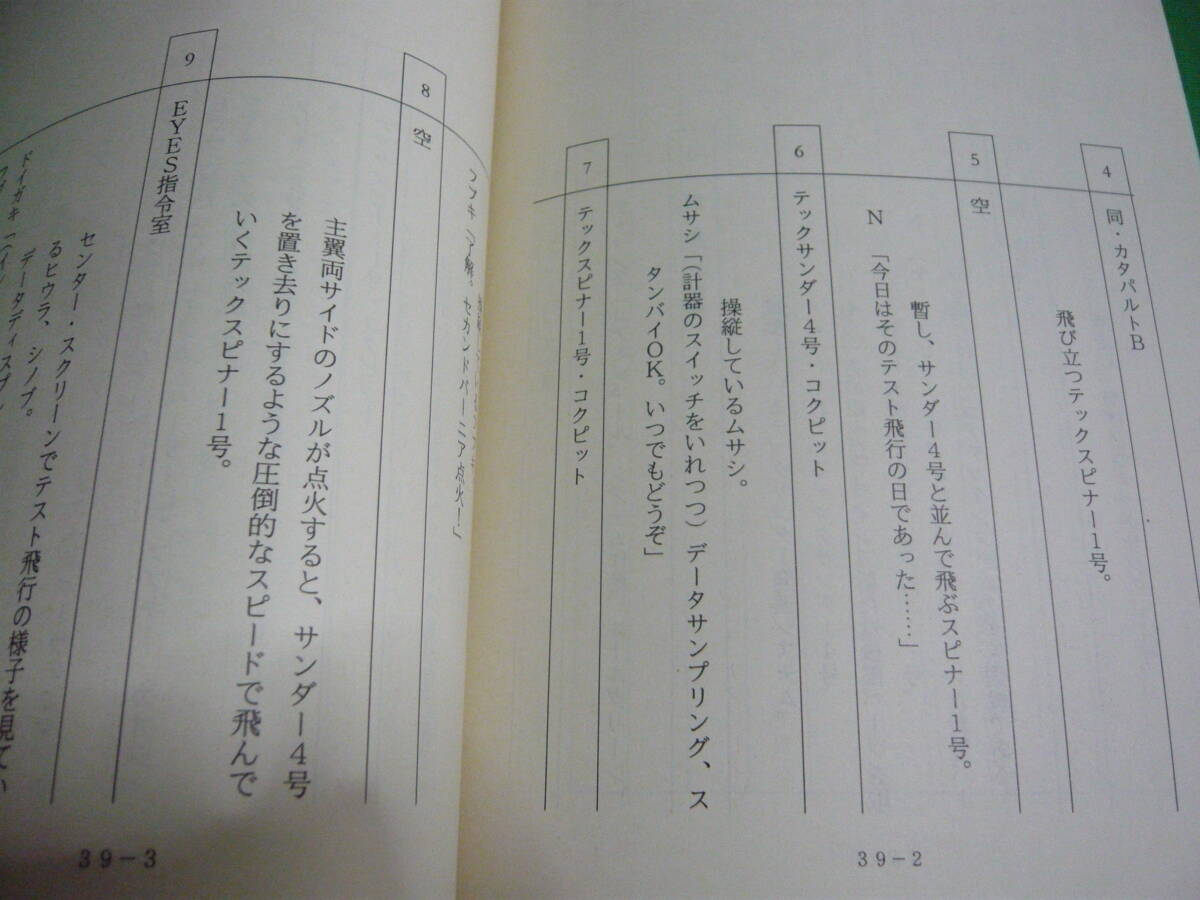 4 同・カタパルトB
飛び立つテックスピナー1号。
5 空
暫し、サンダー4号と並んで飛ぶスピナー1号。
N 「今日はそのテスト飛行の日であった……」
6 テックサンダー4号・コクピット
操縦しているムサシ。
ムサシ「（計器のスイッチをいれつつ）データサンプリング、ス
タンバイOK。いつでもどうぞ」
7 テックスピナー1号・コクピット
39-2
セカンドバーニア点火！」
8 空
主翼両サイドのノズルが点火すると、サンダー4号
を置き去りにするような圧倒的なスピードで飛んで
いくテックスピナー1号。
9 EYES指令室
センター・スクリーンでテスト飛行の様子を見てい
るヒウラ、シノブ。
データディスプレ
ドイガキ
39-3